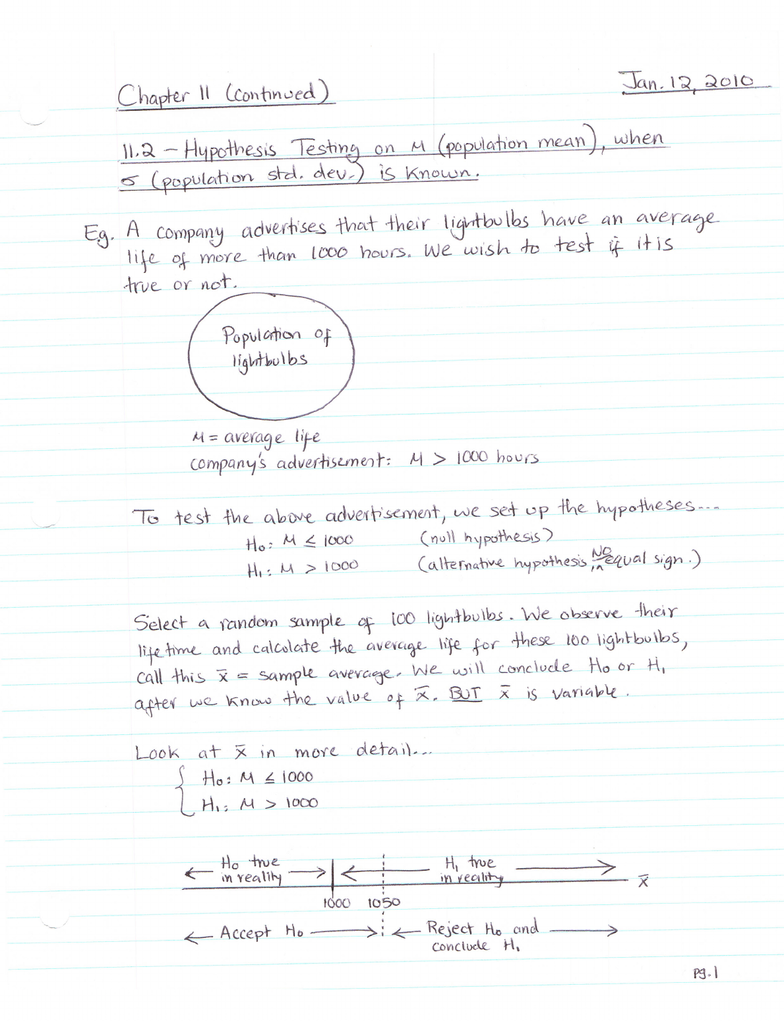 Chapter 11 (continued)
Jan. 12, 2010
11.2 - Hypothesis Testing on M (population mean), when
σ (population std. dev.) is known.
Eg. A company advertises that their lightbulbs have an average
life of more than 1000 hours. We wish to test if it is
true or not.
Population of
lightbulbs
M = average life
company's advertisement: M > 1000 hours
To test the above advertisement, we set up the hypotheses...
H₀: M ≤ 1000 (null hypothesis)
H₁: M > 1000 (alternative hypothesis, NO equal sign in.)
Select a random sample of 100 lightbulbs. We observe their
lifetime and calculate the average life for these 100 lightbulbs,
call this x̄ = sample average. We will conclude H₀ or H₁
after we know the value of x̄. BUT x̄ is variable.
Look at x̄ in more detail...
H₀: M ≤ 1000
H₁: M > 1000
← H₀ true in reality → ← H₁ true in reality → x̄
1000 1050
← Accept H₀ → ← Reject H₀ and →
conclude H₁
pg. 1